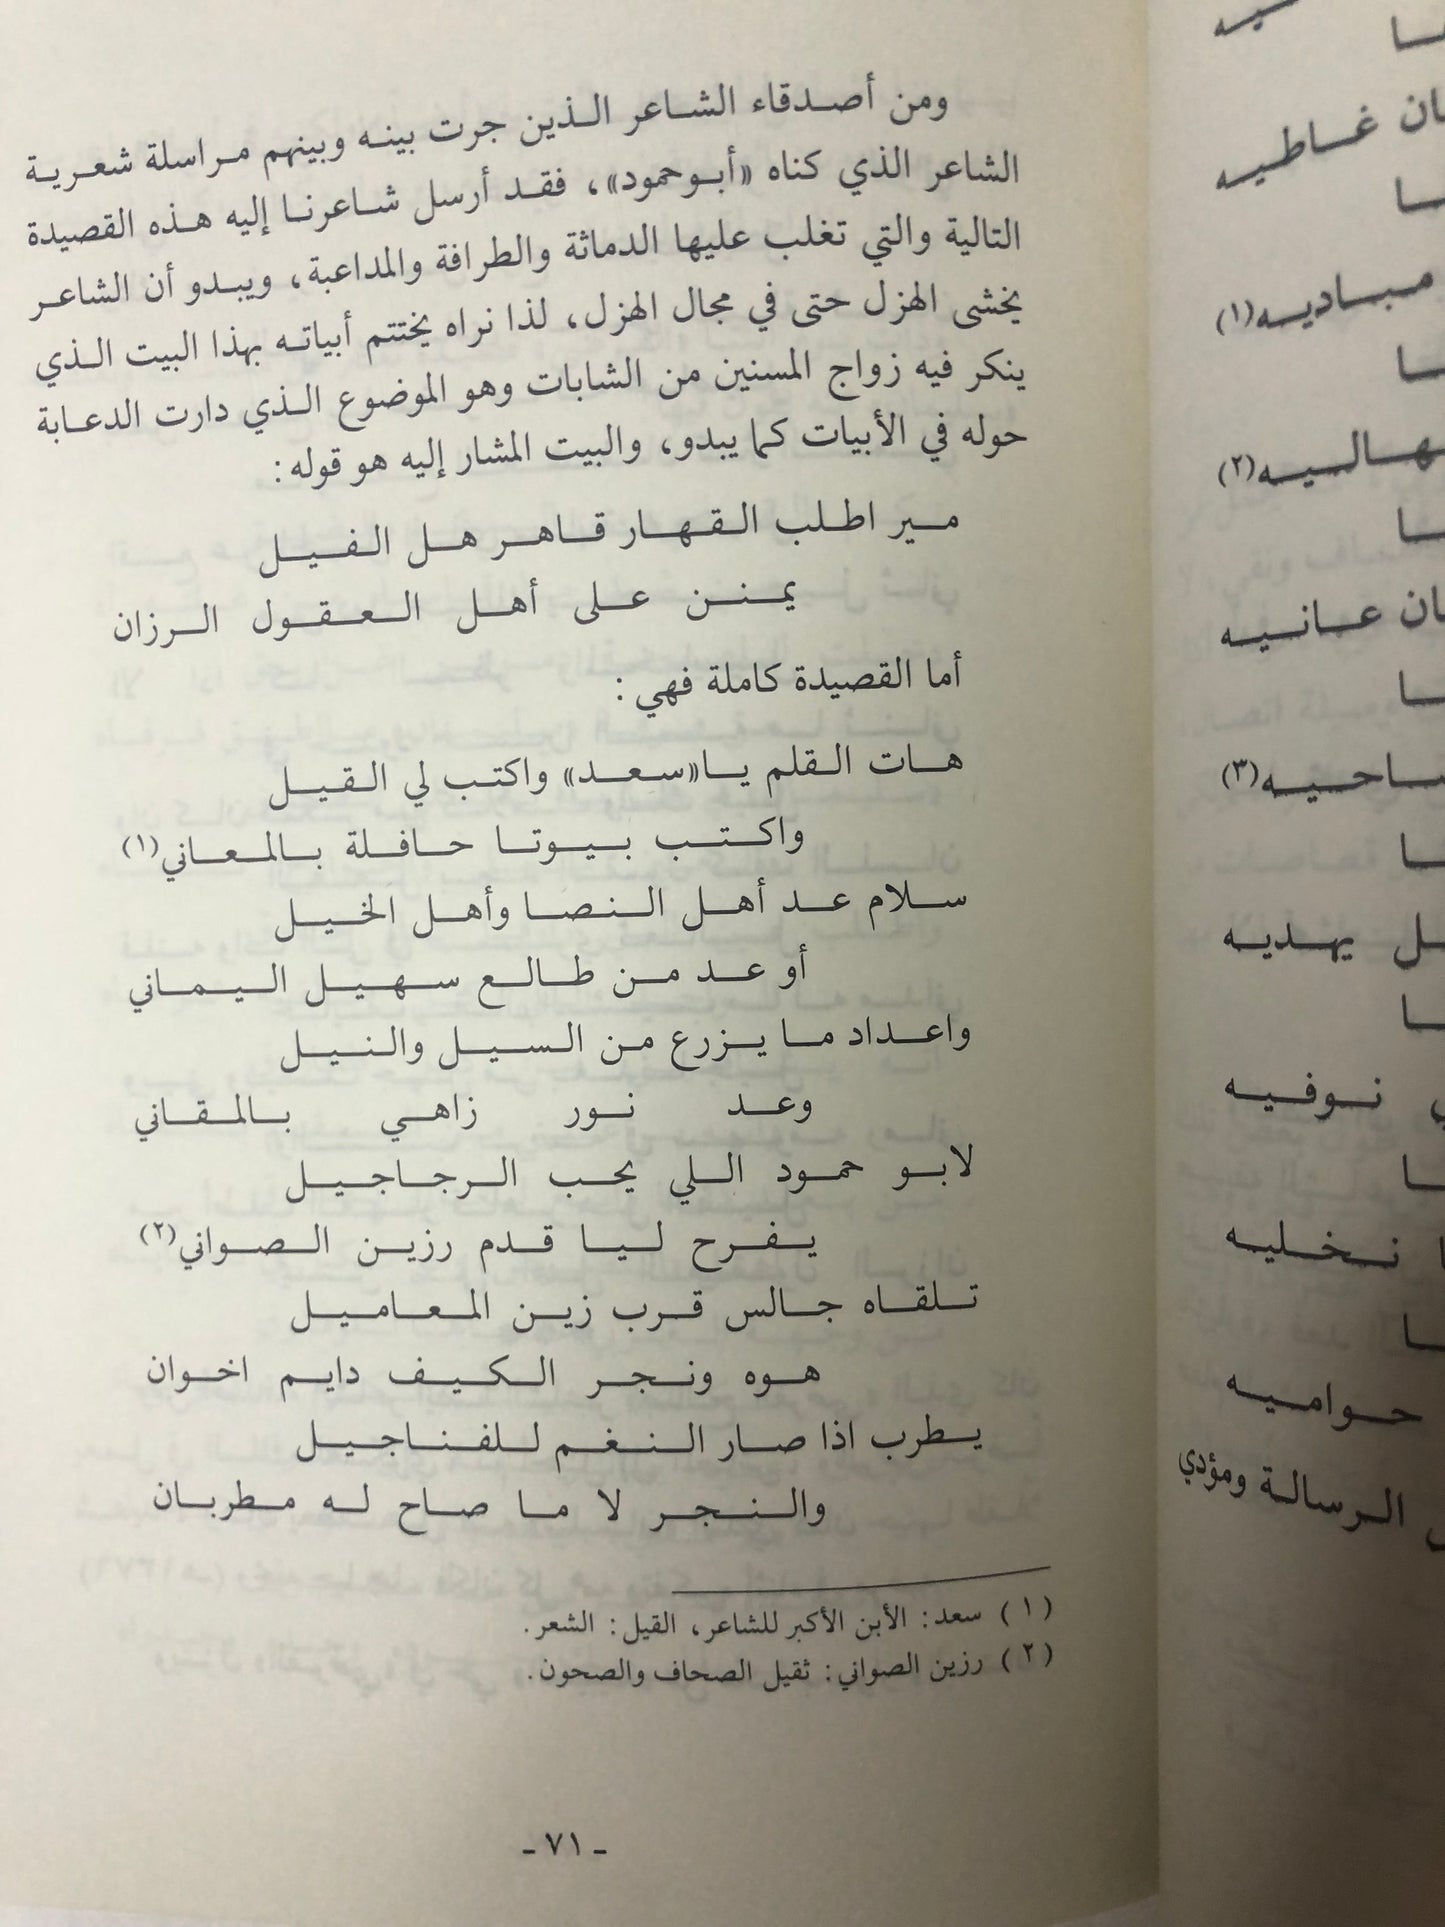 ومن أصدقاء الشاعر الذين جرت بينه وبينهم مراسلة شعرية
الشاعر الذي كناه «أبو حمود»، فقد أرسل شاعرنا إليه هذه القصيدة
التالية والتي تغلب عليها الدماثة والطرافة والمداعبة، ويبدو أن الشاعر
يخشى الهزل حتى في مجال الهزل، لذا نراه يختتم أبياته بهذا البيت الذي
ينكر فيه زواج المسنين من الشابات وهو الموضوع الذي دارت الدعابة
حوله في الأبيات كما يبدو، والبيت المشار إليه هو قوله:
مير اطلب القهار قاهر هل الفيل
يمنن على أهل العقول الرزان
أما القصيدة كاملة فهي:
هات القلم يا«سعد» واكتب لي القيل
واكتب بيوتا حافلة بالمعاني(١)
سلام عد أهل النصا وأهل الخيل
أو عد من طالع سهيل اليماني
واعداد ما يزرع من السيل والنيل
وعد نور زاهي بالمقاني
لابو حمود اللي يحب الرجاجيل
يفرح ليا قدم رزين الصواني(٢)
تلقاه جالس قرب زين المعاميل
هوه ونجر الكيف دايم اخوان
يطرب اذا صار النغم للفناجيل
والنجر لا ما صاح له مطربان
(١) سعد: الأبن الأكبر للشاعر، القيل: الشعر.
(٢) رزين الصواني: ثقيل الصحاف والصحون.
- ٧١ -
غاطيه
مباديه(١)
(٢)
عانيه
(٣)
يهديه
نوفيه
نخليه
حواميه
الرسالة ومؤدي